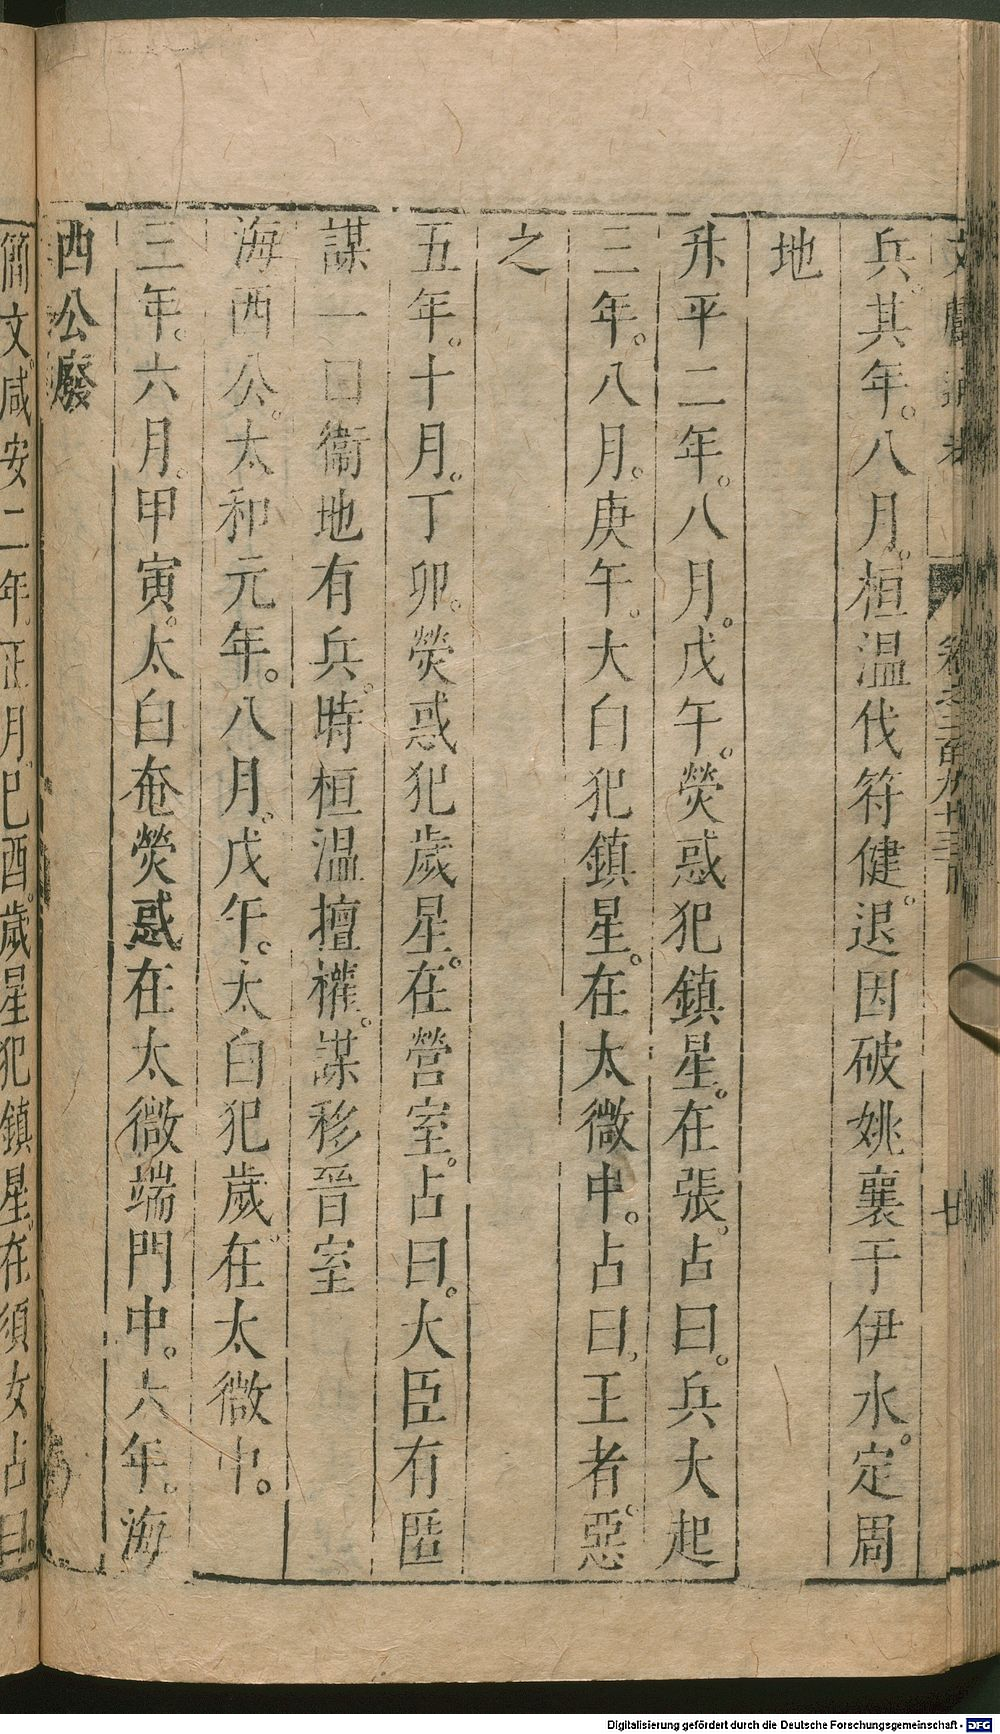 文獻通考 卷之二百九十三 廿
兵。其年。八月。桓温伐符健。退因破姚襄于伊水。定周
地
升平二年。八月。戊午。熒惑犯鎮星。在張。占曰。兵大起
三年。八月。庚午。大白犯鎮星。在太微中。占曰。王者惡
之
五年。十月。丁卯。熒惑犯歲星。在營室。占曰。大臣有匿
謀一曰衞地有兵。時桓温擅權。謀移晉室
海西公。太和元年。八月。戊午。太白犯歲在太微中。
三年。六月。甲寅。太白奄熒惑在太微端門中。六年。海
西公廢
簡文。咸安二年。正月。巳酉。歲星犯鎮星。在須女占曰。
Digitalisierung gefördert durch die Deutsche Forschungsgemeinschaft - DFG